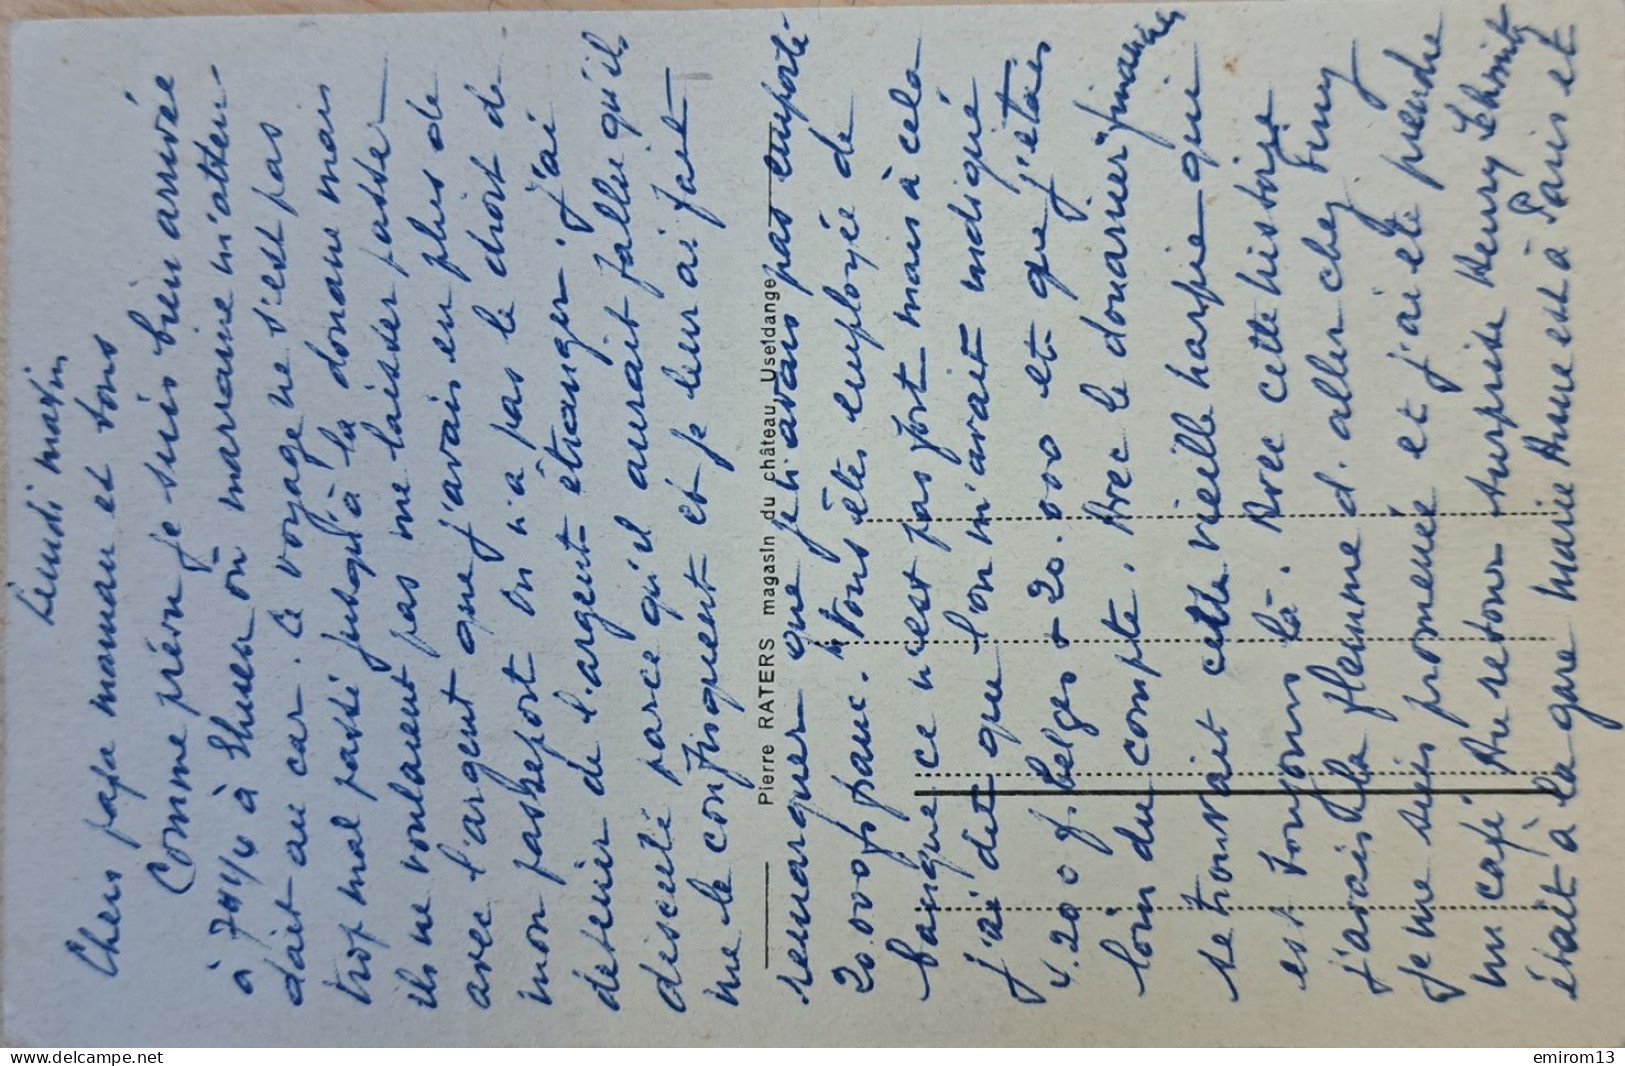 Lundi matin
Chers papa maman et tous
Comme prévu je suis bien arrivée
à 7H14 à où marraine m'atten-
dait au car. Le voyage ne s'est pas
trop mal passé jusqu'à la douane mais
ils ne voulaient pas me laisser passer
avec l'argent que j'avais en plus de
mon passeport. On n'a pas le droit de
détenir de l'argent étranger. J'ai
discuté parce qu'il aurait fallu qu'ils
me le confisquent et je leur ai fait
Pierre RATERS magasin du château Useldange
remarquer que je n'avais pas emporté
20.000 fs franc. "Vous êtes employée de
banque ce n'est pas fort mais à cela
j'ai dit que l'on m'avait indiqué
4.200 f. belges + 20.000 et que j'étais
loin du compte. Avec le douanier
se trouvait cette vieille harpie qui
est toujours là. Avec cette histoire
j'avais la flemme d'aller chez
je me suis promenée et j'ai été prendre
un café. Au retour surprise Henry Schmitz
était à la gare Marie Anne est à Paris et
delcampe.net
emirom13